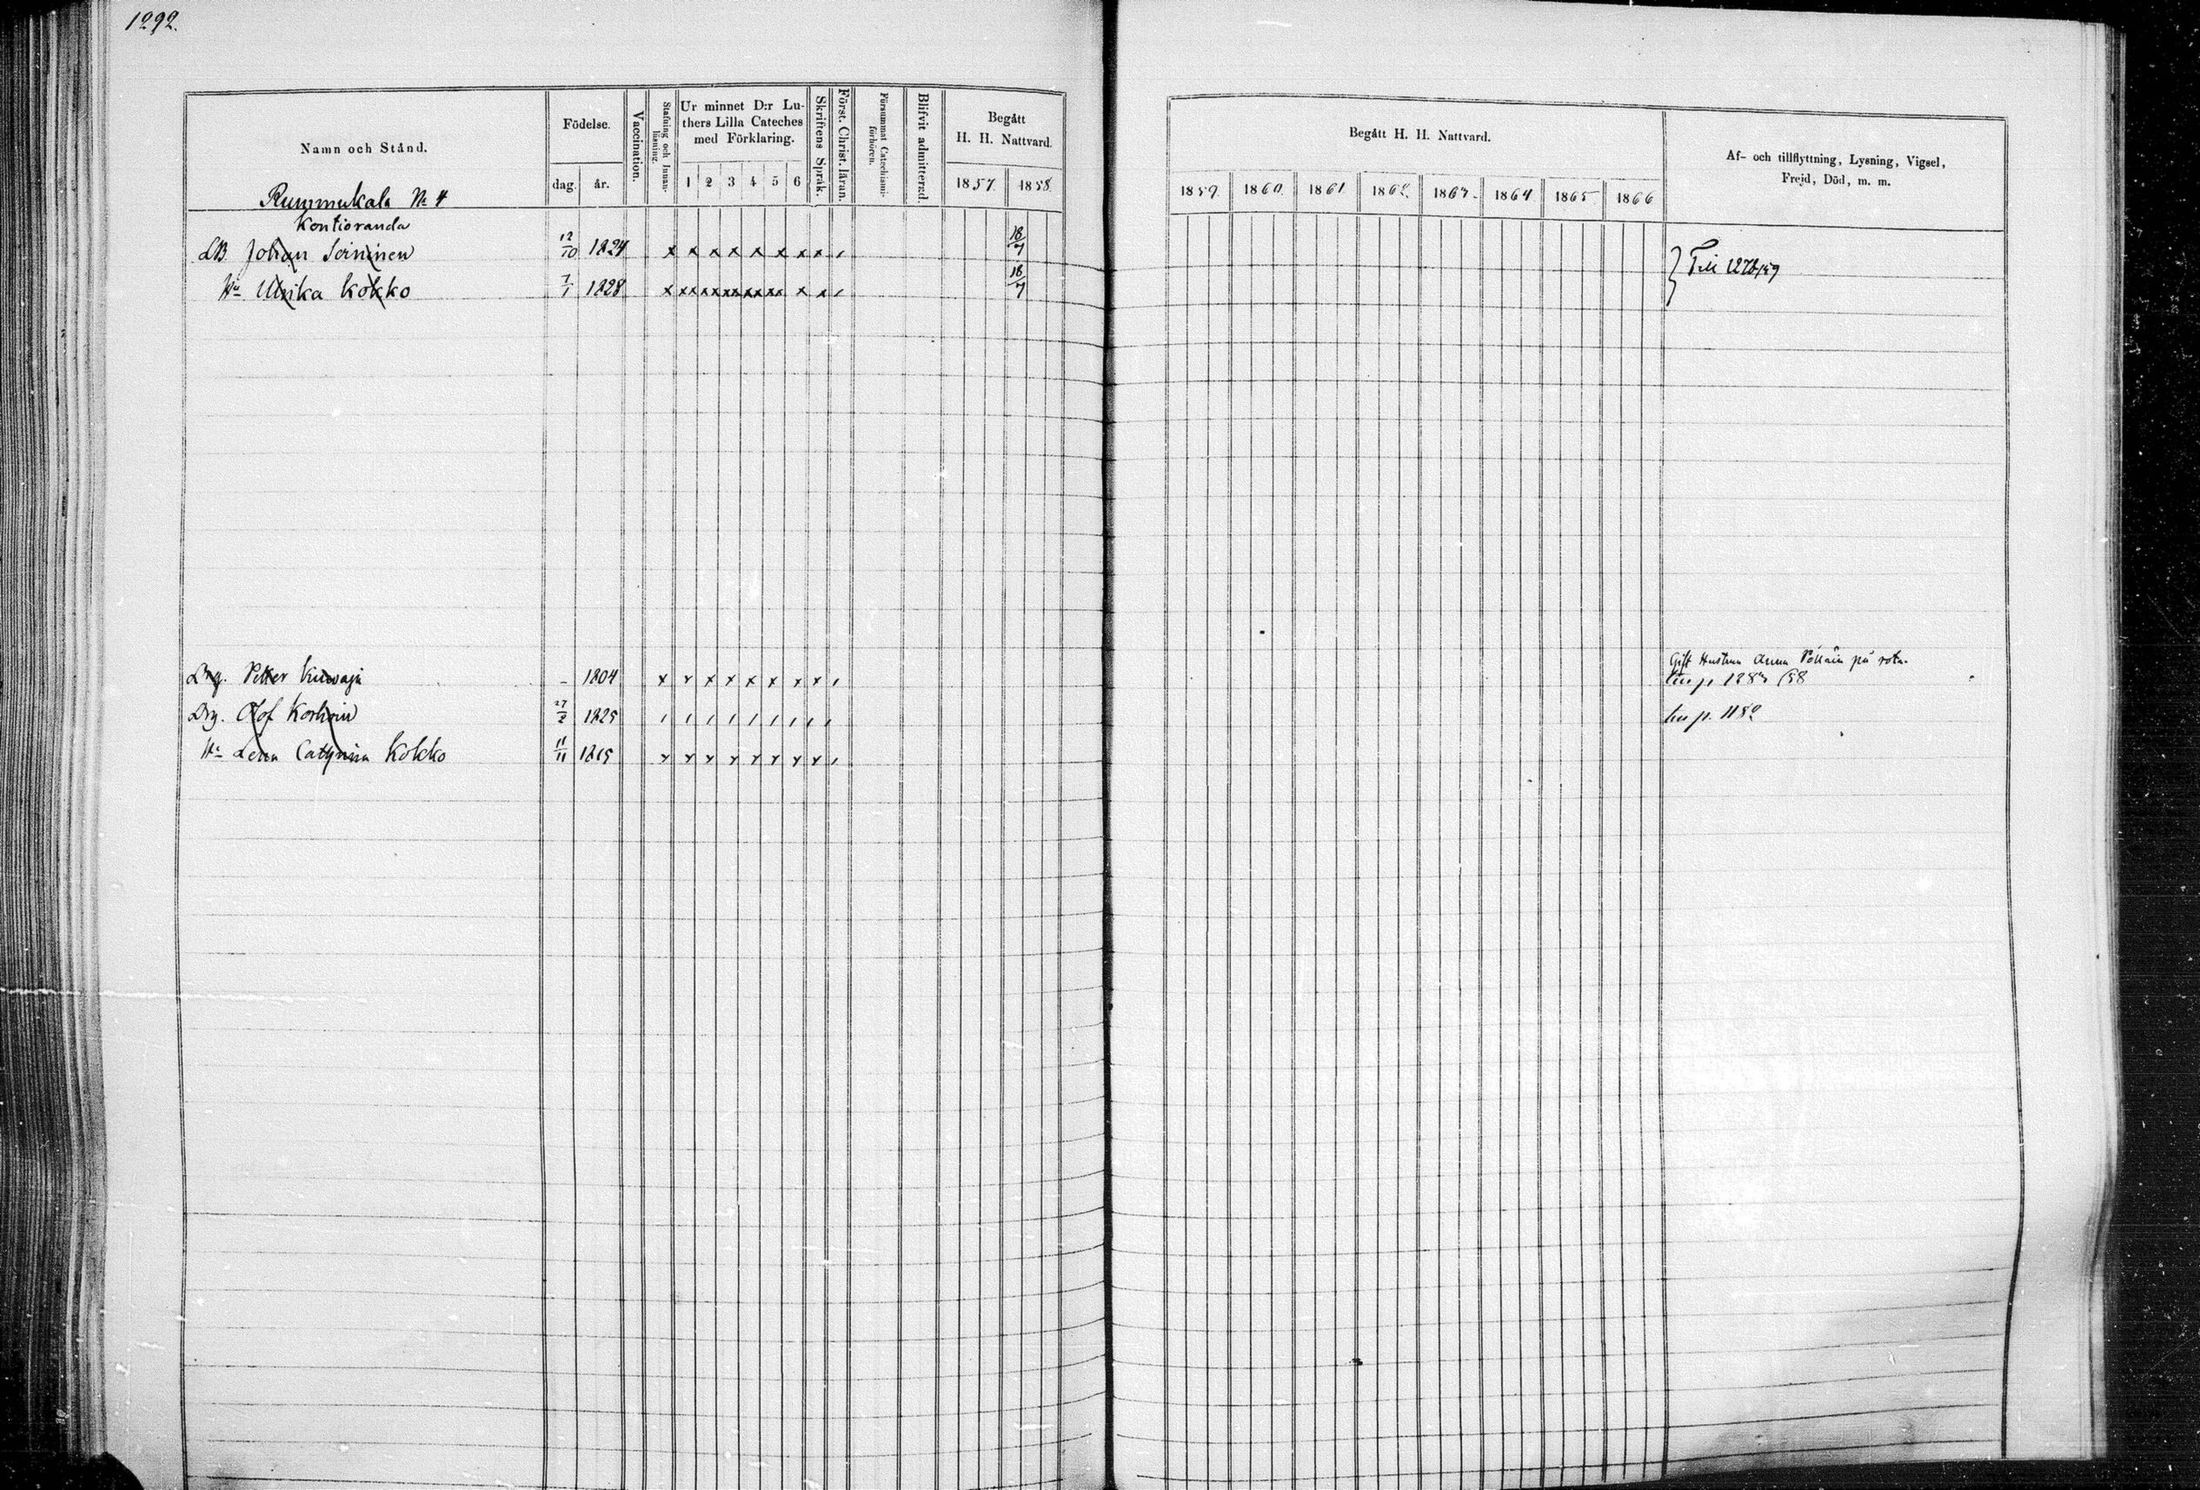 1292.
Namn och Stånd.
Födelse.
dag. år.
Vaccination.
Stafning och Innanläsning.
Ur minnet D:r Luthers Lilla Cateches med Förklaring.
1 2 3 4 5 6
Skriftens Språk.
Först. Christ. läran.
Försummat Catechismiförhören.
Blifvit admitterad.
Begått H. H. Nattvard.
1857. 1858.
Begått H. H. Nattvard.
1859. 1860. 1861 1862. 1863. 1864 1865 1866
Af- och tillflyttning, Lysning, Vigsel, Frejd, Död, m. m.
Rummukala No 4
Kontioranda
LB Johan Soininen 12/10 1824 x x x x x x x x x / 18/7 Till 1278/59
Hu Ulrika Kokko 7/1 1828 18/7
Gift Hustrun Anna på rota.
Drg. Petter – 1804 x x x x x x x x / 58
Drg. Olof Korhoin 27/2 1825 / / / / / / / / / p. 1182
Hu Lena Catrina Kokko 11/11 1815 x x x x x x x x /